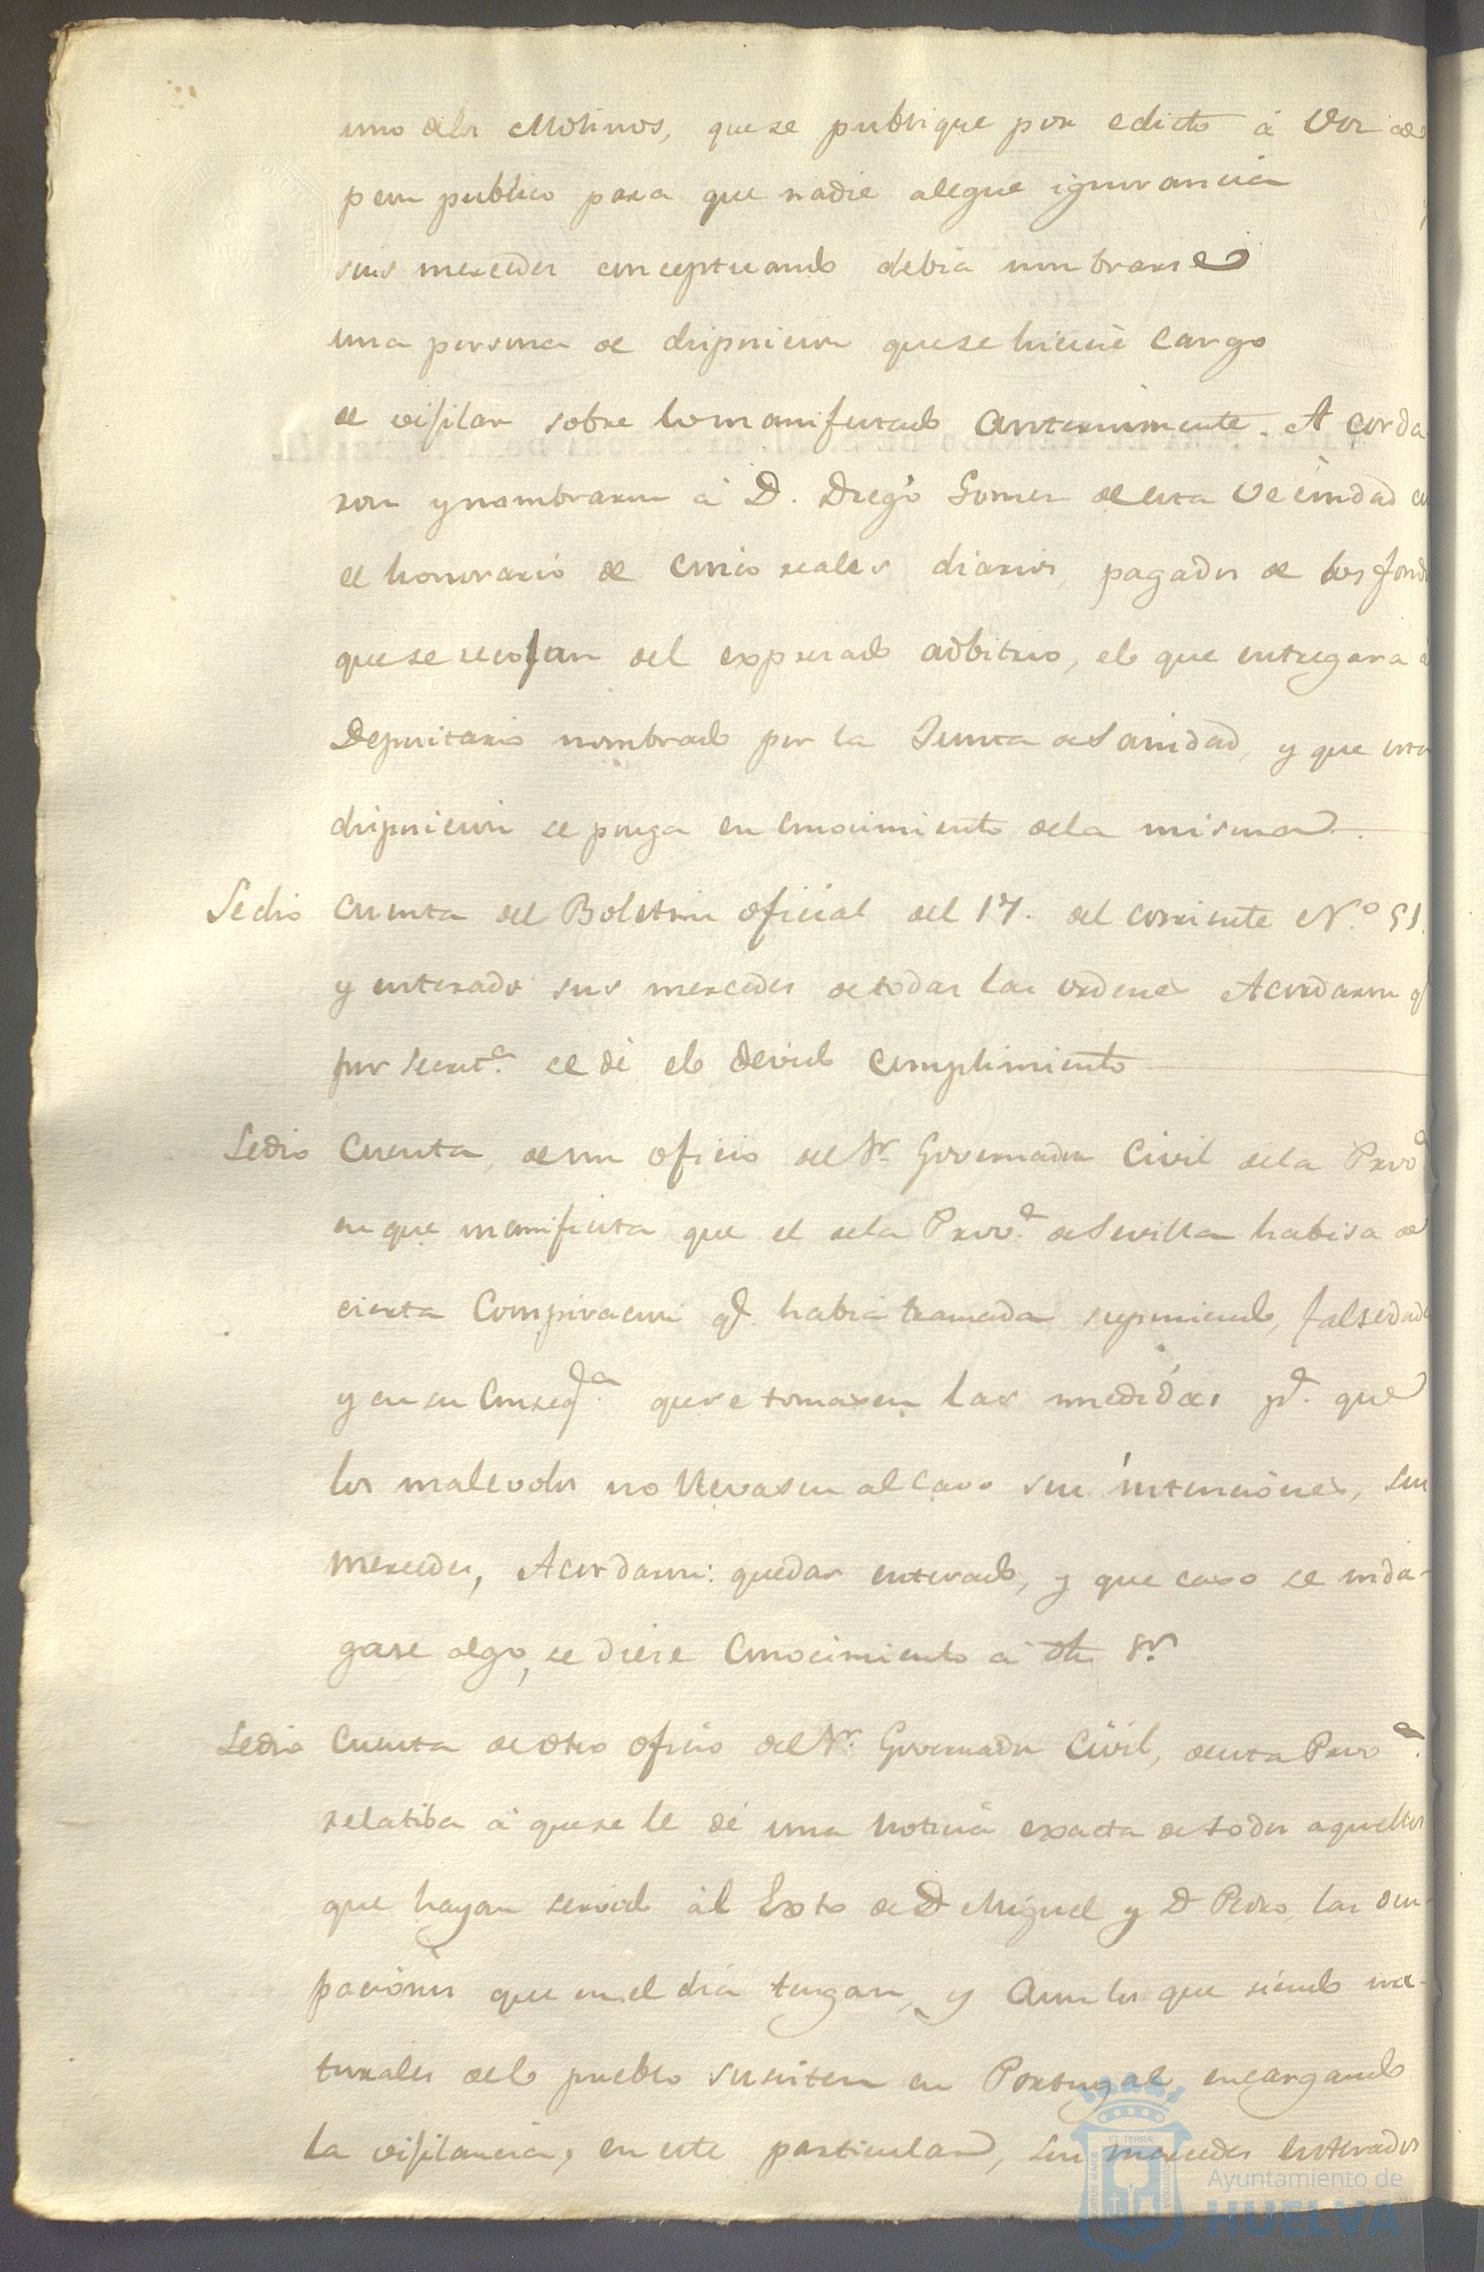 uno delos Molinos, quese publique por edicto á Voz de
peon publico para que nadie alegue ignorancia
sus mercedes conceptuando debia nombrarse
una persona de disposicion quese hiciese cargo
de vijilar sobre lo manifestado anteriormente. Acorda
ron y nombraron á D. Diego Gomez de esta Vecindad con
el honorario de cinco reales diarios, pagados de los fondos
quese recojan del expresado adbitrio, elo que entregara á
Depositario nombrado por la Junta de Sanidad, y que esta
disposicion se ponga en conocimiento dela misma.
Sedio cuenta del Boletin oficial del 17. del corriente N.º 51.
y enterados sus mercedes de todas las ordenes Acordaron q
por Secret.ª se dé elo devido cumplimiento
Sedio Cuenta, de un oficio del Sr. Governador Civil dela Prov.ª
en que manifiesta que el dela Prov.ª de Sevilla habisa de
cierta Conspiracion q.e habia tramada suponiendo, falsedades
y en su Conseq.ª quese tomasen las medidas p.a que
los malevolos no llevasen al cavo sus intenciones, sus
mercedes, Acordaron: quedar enterado, y que caso se inda-
gase algo, se diese Conocimiento á dho Sr.
Sedio Cuenta de otro oficio del Sr. Governador Civil, de esta Prov.ª
relatiba á quese le dé una noticia exacta de todos aquellos
que hayan servido al Exto de D. Miguel y D. Pedro, las ocu-
paciones que en el dia tengan, y aun los que siendo na-
turales delo pueblo en Portugal, encargando
la vijilancia, en este particular, sus mercedes Enterados
ET TERRA
Ayuntamiento de
HUELVA